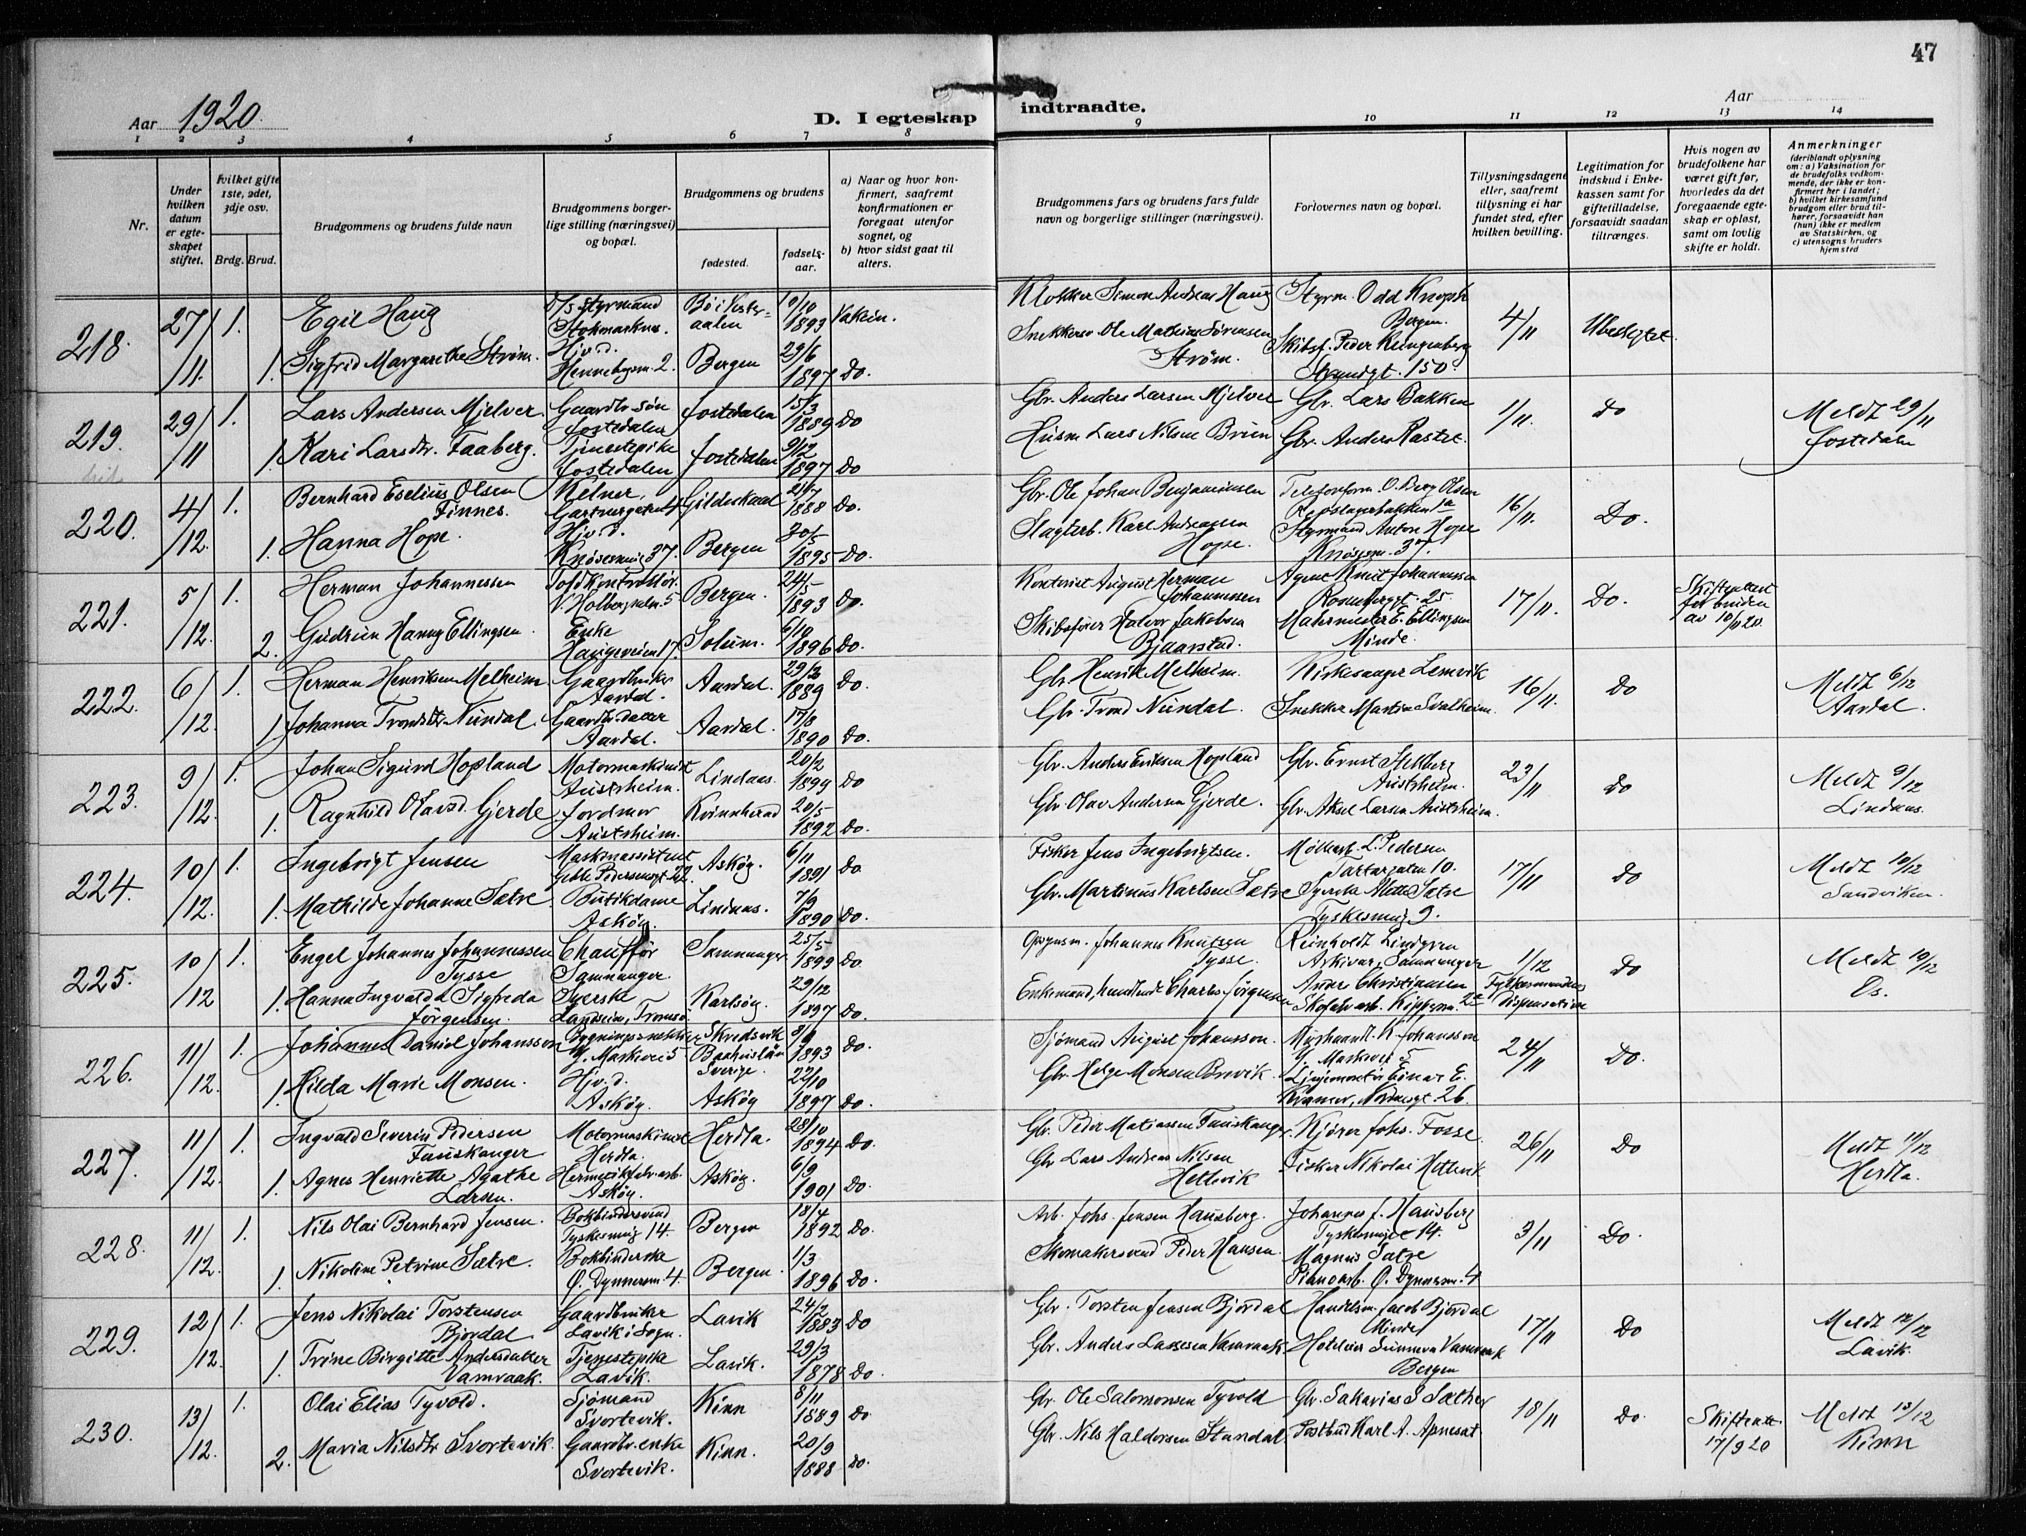 47
Aar 1920
D. I egteskap indtraadte.
Aar
1 2 3 4 5 6 7 8 9 10 11 12 13 14
Nr.
Under hvilken datum er egteskapet stiftet.
Hvilket gifte 1ste, 2det, 3dje osv.
Brdg. Brud.
Brudgommens og brudens fulde navn
Brudgommens borgerlige stilling (næringsvei) og bopæl.
Brudgommens og brudens
fødested.
fødselsaar.
a) Naar og hvor konfirmert, saafremt konfirmationen er foregaat utenfor sognet, og
b) hvor sidst gaat til alters.
Brudgommens fars og brudens fars fulde navn og borgerlige stillinger (næringsvei).
Forlovernes navn og bopæl.
Tillysningsdagene eller, saafremt tillysning ei har fundet sted, efter hvilken bevilling.
Legitimation for indskud i Enkekassen samt for giftetilladelse, forsaavidt saadan tiltrænges.
Hvis nogen av brudefolkene har været gift før, hvorledes da det foregaaende egteskap er opløst, samt om lovlig skifte er holdt.
Anmerkninger
(deriblandt oplysning om: a) Vaksination for de brudefolks vedkommende, der ikke er konfirmert her i landet; b) hvilket kirkesamfund brudgom eller brud tilhører, forsaavidt han (hun) ikke er medlem av Statskirken, og c) utensogns bruders hjemsted
218. 27/11 1. Egil Haug D/S Styrmand Stokmarknes. Bø i Vesteraalen 1893 Vaksin. Klokker Simon Andreas Haug Styrm. Odd Knoph Bergen. 4/11 Ubesigtet
1. Sigfrid Margarethe Strøm. Hjv. d. 2. Bergen 29/6 1897 Do. Snekker Ole Mathias Sørensen Strøm. Skibsf. Peder Klingenberg Strandgt. 150
219. 29/11 1. Lars Andersen Mjelver Gaardbr. søn Jostedalen Jostedalen 15/3 1889 Do Gbr. Anders Larsen Mjelver Gbr. Lars Bakken 1/11. Do Meldt 29/11 Jostedalen
1. Kari Larsdtr. Faaberg. Tjenestepike Jostedalen Jostedalen 9/12 1897 Do Husm Lars Nilsen Bruun Gbr. Anders
220. 4/12. 1. Bernhard Eselius Olsen Finnes. Kelner, Gartnergaten Gildeskaal 1888 Do. Gbr. Ole Johan Benjaminsen O. Berg Olsen 16/11. Do.
1. Hanna Hope. Hjv. d. Knøsesmug 37. Bergen 30/5 1895 Do. Slagterb. Karl Andreassen Hope. Styrmand Anton Hope 37.
221. 5/12. 1. Herman Johannessen Toldkontrollør. V. Holbergsalm. 5 Bergen. 24/5 1893 Do. Kontorist August Herman Johannessen Agent Knut Johannessen Rosenbergt. 25 17/11. Do. Skifteattest for bruden av 10/11 20.
2. Gudrun Hanny Ellingsen. Enke Haugeveien 17. Solum. 6/10 1896 Do. Skibsfører Halvor Jakobsen Bjaarstad. E. Ellingsen Minde.
222. 6/12. 1. Herman Henriksen Melheim Gaardbruker Aardal. Aardal. 1889 Do. Gbr. Henrik Melheim. Kirkesanger Lemvik 16/11. Do Meldt 6/12 Aardal.
1. Johanna Trondsdtr Nundal. Gaardbr. datter Aardal. Aardal. 17/8 1890 Do. Gbr. Trond Nundal. Snekker Martin Svalheim.
223. 9/12. 1. Johan Sigurd Hopland Motormaskinist Austrheim. Lindaas. 20/2 1899 Do Gbr. Anders Eriksen Hopland Gbr. Ernst Austrheim. 23/11 Do Meldt 9/12 Lindaas.
1. Ragnhild Olavsd. Gjerde Jordmor Austrheim. Kvinnherad 20/5 1892 Do. Gbr. Olav Andersen Gjerde. Gbr. Aksel Larsen Austrheim.
224. 10/12. 1. Ingebrigt Jensen Maskinassistent Geble Pedersensgt 22. Askøy. 6/11 1891 Do Fisker Jens Ingebrigtsen. L. Pedersen Tartargaten 10. 17/11 Do Meldt 10/12 Sandviken.
1. Mathilde Johanne Sætre. Butikdame Askøy. Lindaas. 7/9 1890 Do. Gbr. Martinus Karlsen Sætre Mette Sætre Tyskesmug 9.
225. 10/12 1. Engel Johannes Johannessen Tysse Chauffør Samnanger. Samnanger 25/5 1899 Do. Opsynsm. Johannes Knutsen Tysse. Reinholdt Lindgren Arkivar, Samnanger 1/12 Fylkesmandens dispensation Do Meldt 10/12 Os.
1. Hanna Ingvalda Sigfreda Jørgensen. Syerske Tromsø. Karlsøy. 29/12 1897 Do. Enkemand, handlende Charles Jørgensen Andr. Christiansen
226. 11/12. 1. Johannes Daniel Johansson Bygningssnekker Y. Markvei 5 Skredsvik Bohuslän Sverige. 8/9 1893 Do. Sjømand August Johansson. K. Johansson Y. Markvei 5 24/11 Do.
1. Hilda Marie Monsen. Hjv. d. Askøy. Askøy 22/10 1897 Do. Gbr. Helge Monsen Brevik. Linjemontør Einar E. Kramer, Nordnesgt 26.
227. 11/12. 1. Ingvald Severin Pedersen Fauskanger Motormaskinist Herdla. Herdla. 28/10 1894 Do Gbr. Peder Matiassen Fauskanger Kjører Johs. Fosse. 26/11 Do Meldt 11/12 Herdla.
1. Agnes Henriette Agathe Larsen. Hermetikfabr. arb. Askøy. Askøy. 6/9 1901 Do. Gbr Lars Andreas Nilsen Hetlevik Fisker Nikolai Hetlevik
228. 11/12. 1. Nils Olai Bernhard Jensen. Bokbindersvend Tyskesmug 14. Bergen 18/4 1892 Do. Arb. Johs. Jensen Hausberg. Johannes J. Hausberg Tyskesmug 14. 3/11 Do.
1. Nikoline Petrine Sætre. Bokbinderske Ø. Dynnersm 4. Bergen. 1/3 1896 Do. Skomakersvend Peder Hansen. Magnus Sætre Pianoarb. Ø. Dynnersm. 4
229. 12/12. 1. Jens Nikolai Torstensen Bjordal Gaardbruker Lavik i Sogn. Lavik 24/2 1883 Do Gbr. Torsten Jensen Bjordal Handelsm. Jacob Bjordal Minde 17/11 Do Meldt 12/12 Lavik.
1. Trine Birgitte Andersdatter Vamraak. Tjenestepike Lavik. Lavik. 29/3 1878 Do. Gbr. Anders Lassesen Vamraak. Vamraak Bergen
230. 13/12. 1. Olai Elias Tyvold. Sjømand Svortevik. Kinn 8/11 1889 Do Gbr. Ole Salomonsen Tyvold Gbr. Sakarias S Sæther 18/11 Do. Skifteatt. 17/9 20 Meldt 13/12 Kinn
2. Maria Nilsdtr Svortevik. Gaardbr. enke Svortevik. Kinn. 20/9 1888 Do. Gbr. Nils Haldorsen Standal. Postbud Karl A. Apneset